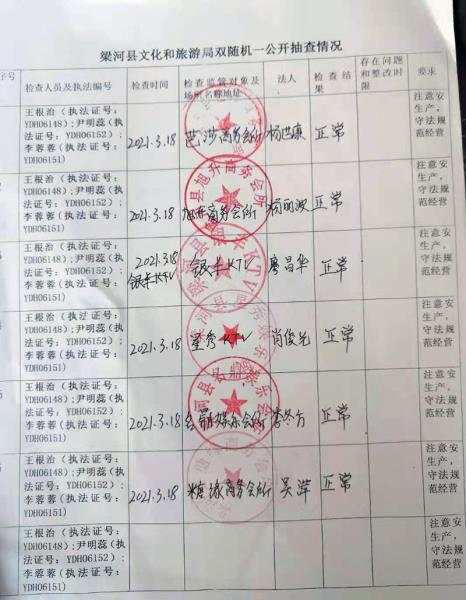 梁河县文化和旅游局双随机一公开抽查情况
序号
检查人员及执法编号
检查时间
检查监管对象及
场所名称地址
法人
检查结
果
存在问题
和整改时
限
要求
王根治（执法证号：
YDH06148）;尹明蕊(执
法证号：YDH06152）;
李蓉蓉（执法证号：
YDH06151)
2021.3.18
芭莎商务会所
杨世康
正常
注意安
全生产，
守法规
范经营
王根治（执法证号：
YDH06148）;尹明蕊(执
法证号：YDH06152）;
李蓉蓉（执法证号：
YDH06151)
2021.3.18
旭升商务会所
杨丽波
正常
注意安
全生产，
守法规
范经营
王根治（执法证号：
YDH06148）;尹明蕊(执
法证号：YDH06152）;
李蓉蓉（执法证号：
YDH06151)
2021.3.18
银丰KTV
银丰KTV
廖昌华
正常
注意安
全生产，
守法规
范经营
王根治（执法证号：
YDH06148）;尹明蕊(执
法证号：YDH06152）;
李蓉蓉（执法证号：
YDH06151)
2021.3.18
星秀KTV
肖俊光
正常
注意安
全生产，
守法规
范经营
王根治（执法证号：
YDH06148）;尹明蕊(执
法证号：YDH06152）;
李蓉蓉（执法证号：
YDH06151)
2021.3.18
名鼎娱乐会所
正常
注意安
全生产，
守法规
范经营
王根治（执法证号：
YDH06148）;尹明蕊(执
法证号：YDH06152）;
李蓉蓉（执法证号：
YDH06151)
2021.3.18
缘商务会所
吴萍
正常
注意安
全生产，
守法规
范经营
王根治（执法证号：
YDH06148）;尹明蕊(执
法证号：YDH06152）;
李蓉蓉（执法证号：
YDH06151)
注意安
全生产，
守法规
范经营